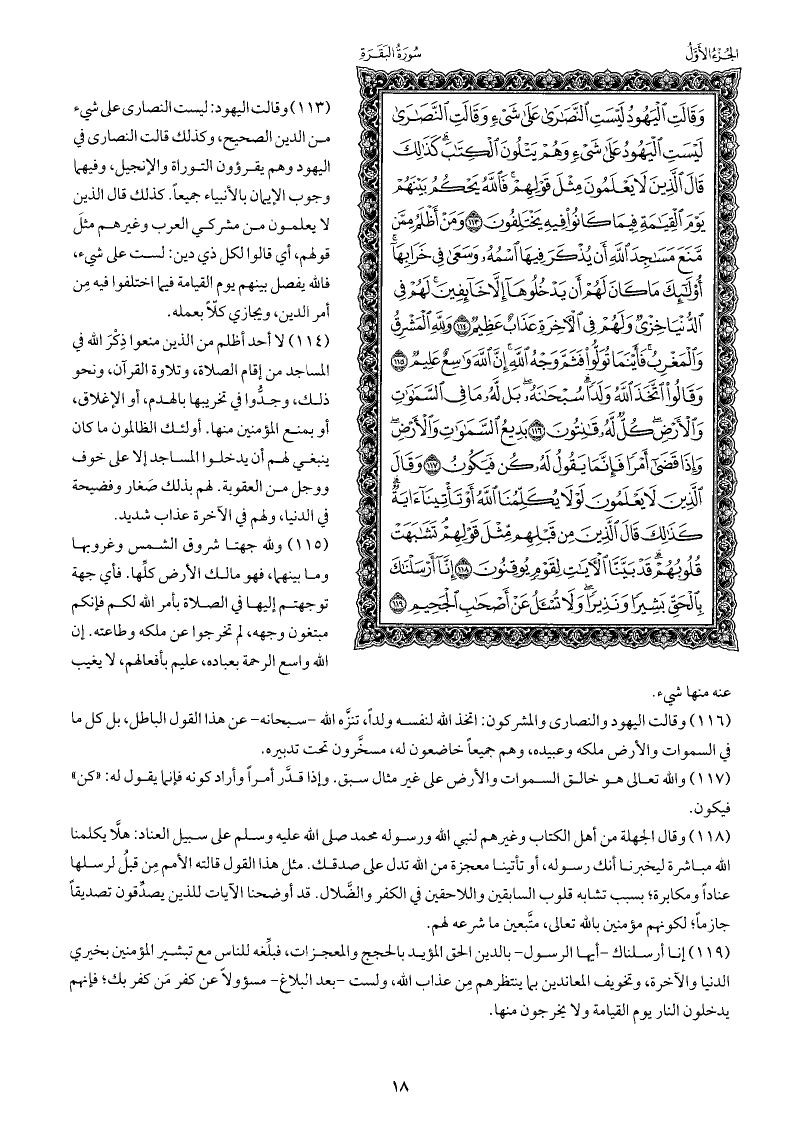 الجزء الأول
سورة البقرة
وَقَالَتِ ٱلْيَهُودُ لَيْسَتِ ٱلنَّصَٰرَىٰ عَلَىٰ شَىْءٍ وَقَالَتِ ٱلنَّصَٰرَىٰ
لَيْسَتِ ٱلْيَهُودُ عَلَىٰ شَىْءٍ وَهُمْ يَتْلُونَ ٱلْكِتَٰبَ ۗ كَذَٰلِكَ
قَالَ ٱلَّذِينَ لَا يَعْلَمُونَ مِثْلَ قَوْلِهِمْ ۚ فَٱللَّهُ يَحْكُمُ بَيْنَهُمْ
يَوْمَ ٱلْقِيَٰمَةِ فِيمَا كَانُوا۟ فِيهِ يَخْتَلِفُونَ ١١٣ وَمَنْ أَظْلَمُ مِمَّن
مَّنَعَ مَسَٰجِدَ ٱللَّهِ أَن يُذْكَرَ فِيهَا ٱسْمُهُۥ وَسَعَىٰ فِى خَرَابِهَآ ۚ
أُو۟لَٰٓئِكَ مَا كَانَ لَهُمْ أَن يَدْخُلُوهَآ إِلَّا خَآئِفِينَ ۚ لَهُمْ فِى
ٱلدُّنْيَا خِزْىٌ وَلَهُمْ فِى ٱلْءَاخِرَةِ عَذَابٌ عَظِيمٌ ١١٤ وَلِلَّهِ ٱلْمَشْرِقُ
وَٱلْمَغْرِبُ ۚ فَأَيْنَمَا تُوَلُّوا۟ فَثَمَّ وَجْهُ ٱللَّهِ ۚ إِنَّ ٱللَّهَ وَٰسِعٌ عَلِيمٌ ١١٥
وَقَالُوا۟ ٱتَّخَذَ ٱللَّهُ وَلَدًا ۗ سُبْحَٰنَهُۥ ۖ بَل لَّهُۥ مَا فِى ٱلسَّمَٰوَٰتِ
وَٱلْأَرْضِ ۖ كُلٌّ لَّهُۥ قَٰنِتُونَ ١١٦ بَدِيعُ ٱلسَّمَٰوَٰتِ وَٱلْأَرْضِ ۖ
وَإِذَا قَضَىٰٓ أَمْرًا فَإِنَّمَا يَقُولُ لَهُۥ كُن فَيَكُونُ ١١٧ وَقَالَ
ٱلَّذِينَ لَا يَعْلَمُونَ لَوْلَا يُكَلِّمُنَا ٱللَّهُ أَوْ تَأْتِينَآ ءَايَةٌ ۗ
كَذَٰلِكَ قَالَ ٱلَّذِينَ مِن قَبْلِهِم مِّثْلَ قَوْلِهِمْ ۘ تَشَٰبَهَتْ
قُلُوبُهُمْ ۗ قَدْ بَيَّنَّا ٱلْءَايَٰتِ لِقَوْمٍ يُوقِنُونَ ١١٨ إِنَّآ أَرْسَلْنَٰكَ
بِٱلْحَقِّ بَشِيرًا وَنَذِيرًا ۖ وَلَا تُسْـَٔلُ عَنْ أَصْحَٰبِ ٱلْجَحِيمِ ١١٩
(١١٣) وقالت اليهود: ليست النصارى على شيء
من الدين الصحيح، وكذلك قالت النصارى في
اليهود وهم يقرؤون التوراة والإنجيل، وفيهما
وجوب الإيمان بالأنبياء جميعاً. كذلك قال الذين
لا يعلمون من مشركي العرب وغيرهم مثلَ
قولهم، أي قالوا لكل ذي دين: لست على شيء،
فالله يفصل بينهم يوم القيامة فيما اختلفوا فيه مِن
أمر الدين، ويجازي كلّاً بعمله.
(١١٤) لا أحد أظلم من الذين منعوا ذِكْرَ الله في
المساجد من إقام الصلاة، وتلاوة القرآن، ونحو
ذلك، وجدُّوا في تخريبها بالهدم، أو الإغلاق،
أو بمنع المؤمنين منها. أولئك الظالمون ما كان
ينبغي لهم أن يدخلوا المساجد إلا على خوف
ووجل من العقوبة. لهم بذلك صَغار وفضيحة
في الدنيا، ولهم في الآخرة عذاب شديد.
(١١٥) ولله جهتا شروق الشمس وغروبها
وما بينهما، فهو مالك الأرض كلِّها. فأي جهة
توجهتم إليها في الصلاة بأمر الله لكم فإنكم
مبتغون وجهه، لم تخرجوا عن ملكه وطاعته. إن
الله واسع الرحمة بعباده، عليم بأفعالهم، لا يغيب
عنه منها شيء.
(١١٦) وقالت اليهود والنصارى والمشركون: اتخذ الله لنفسه ولداً، تنزَّه الله -سبحانه- عن هذا القول الباطل، بل كل ما
في السموات والأرض ملكه وعبيده، وهم جميعاً خاضعون له، مسخَّرون تحت تدبيره.
(١١٧) والله تعالى هو خالق السموات والأرض على غير مثال سبق. وإذا قدَّر أمراً وأراد كونه فإنما يقول له: «كن»
فيكون.
(١١٨) وقال الجهلة من أهل الكتاب وغيرهم لنبي الله ورسوله محمد صلى الله عليه وسلم على سبيل العناد: هلَّا يكلمنا
الله مباشرة ليخبرنا أنك رسوله، أو تأتينا معجزة من الله تدل على صدقك. مثل هذا القول قالته الأمم مِن قبلُ لرسلها
عناداً ومكابرة؛ بسبب تشابه قلوب السابقين واللاحقين في الكفر والضَّلال. قد أوضحنا الآيات للذين يصدِّقون تصديقاً
جازماً؛ لكونهم مؤمنين بالله تعالى، متَّبعين ما شرعه لهم.
(١١٩) إنا أرسلناك -أيها الرسول- بالدين الحق المؤيد بالحجج والمعجزات، فبلِّغه للناس مع تبشير المؤمنين بخيري
الدنيا والآخرة، وتخويف المعاندين بما ينتظرهم مِن عذاب الله، ولست -بعد البلاغ- مسؤولاً عن كفر مَن كفر بك؛ فإنهم
يدخلون النار يوم القيامة ولا يخرجون منها.
١٨